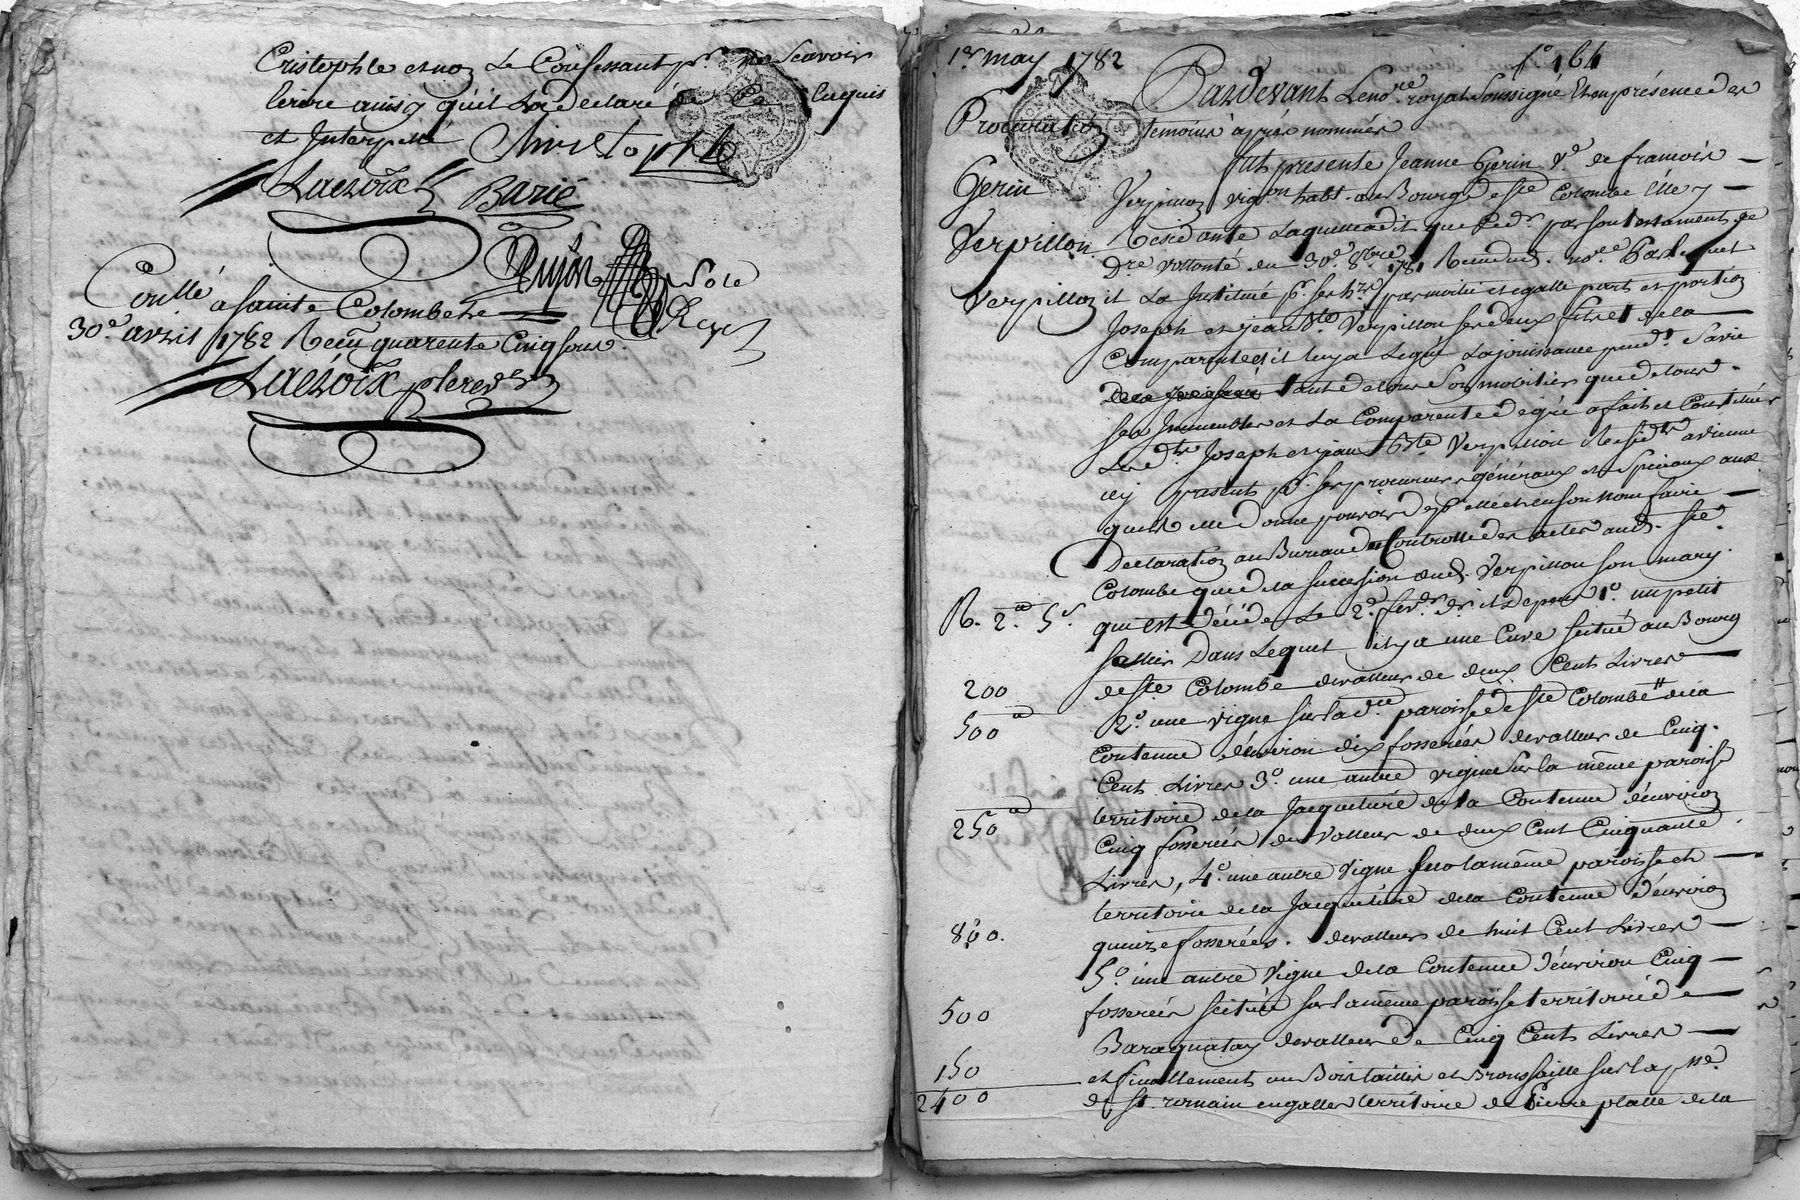 Cristophle et non Le Confessant pr. ne Scavoir
Ecrire ainsy qu'il La declaré de Ce Enquis
et Interpellé Christophle
Lacroix Barié
Dujon
Conllé a Sainte Colombe Le
30e. avril 1782 Reçu quarente Cinq Sous.
Lacroix
1er may 1782
fo 164
Procuration
Gerin Ve
Verpillon
Verpillon
Pardevant Le nore. royal Soussigné Et en présence des
temoins après nommés
fut presente Jeanne Gerin Ve. de francois
Verpillon vigon habt. au Bourg de Ste Colombe Elle y
Residante Laquelle a dit que led. par son testament de
Dre vollonté du 30e. 8bre 1781 Recu dud. nore. Par Lequel
il La Institué pr. Ses hers par moitié et egalle part et portion
Joseph et jean Bte. Verpillon Ses deux fils et de la
Comparente et il luy a Legué La jouissance pend. Sa vie
tant de tous Son mobilier que de tous
Ses Immeubles et La Comparente de gré a fait et Constitué
Lesd. Srs Joseph et jean Bte. Verpillon Resid. a vienne
icy presents pr. Ses procureurs généraux et Speciaux aux
quels elle donne pouvoir de pr. elle et en Son nom faire
Declaration au Bureau de Controlle des actes aud. Ste
Colombe que de la Succession dud. Verpillon Son mary
qui Est décédé Le 2e. fevr. der il depend 1o. un petit
Sellier Dans Lequel il y a une Cuve Scitué au Bourg
de Ste Colombe de valleur de deux Cents Livres
2o. une vigne Sur lad. paroisse de Ste Colombe de la
Contenue d'environ dix fosserées de valleur de Cinq
Cents Livres 3o. une autre vigne Sur la même paroisse
territoire de la Jacquetiere de la Contenue d'environ
Cinq fosserées de valleur de deux Cent Cinquante
Livres, 4o. une autre vigne Sur la même paroisse et
territoire de la Jacquetiere de la Contenue d'environ
quinze fosserées. de valleur de huit Cent Livres
5o. une autre vigne de la Contenue d'environ Cinq
fosserées Scituée Sur la même paroisse territoire de
de valleur de Cinq Cents Livres
et finallement un Bois taillis et Broussaille Sur la psse.
de St. romain en galles territoire de Pierre platte de la
R. 2# 5s.
200
500#
250#
800.
500
150
2400